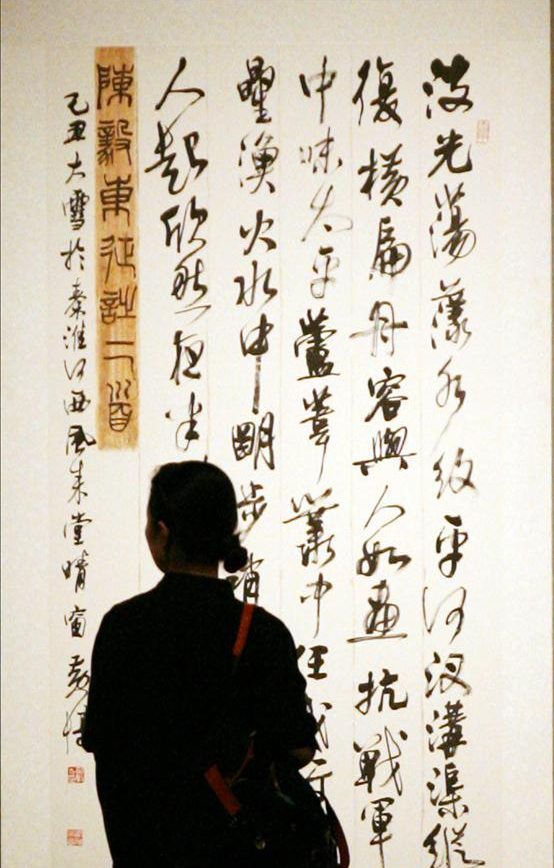 波光蕩漾水紋平河汊溝渠縱
復橫扁舟容與人如畫抗戰軍
中味太平蘆葦叢中任我行
星漁火水中明步哨
人起欣然夜半
陳毅東征詩二首
己丑大雪於秦淮河西風來堂晴窗